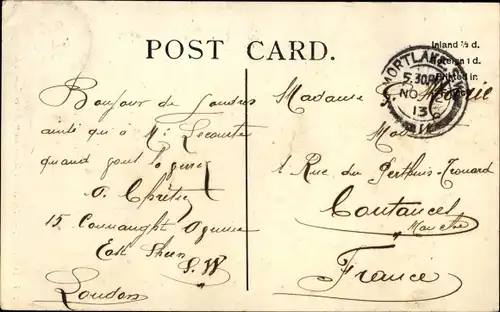 POST CARD.
Inland ½ d.
Foreign 1 d.
Printed in
MORTLAKE
5.30P
NO 2
13
Bonjour de Londres
ainsi qu'à Mr Lecomte
quand
O. Chrétien
15 Connaught Avenue
East Sheen
S.W
London
Madame
1 Rue du Perthuis-Trouard
Coutances
Manche
France